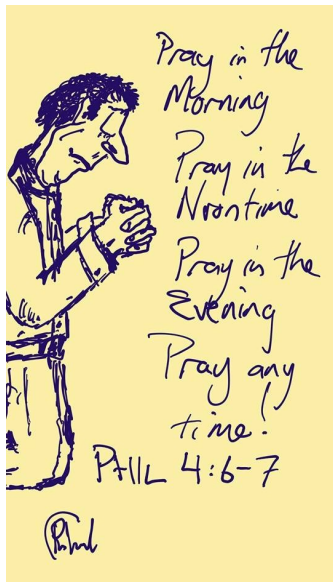 Pray in the
Morning
Pray in the
Noontime
Pray in the
Evening
Pray any
time!
PHIL 4:6-7